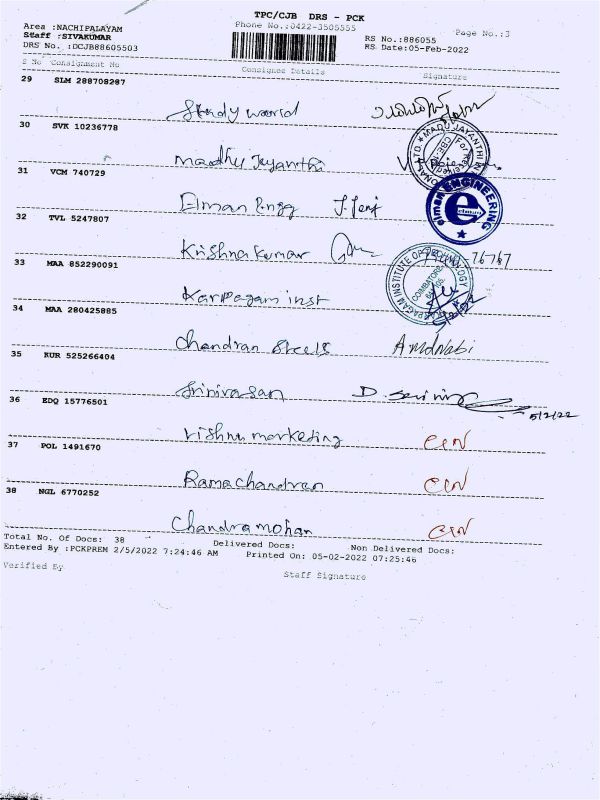 TPC/CJB DRS - PCK
Phone No.:0422-3505555
Page No.:3
Area :NACHIPALAYAM
Staff :SIVAKUMAR
DRS No. :DCJB88605503
RS No.:886055
RS Date:05-Feb-2022
S No Consignment No Consignee Details Signature
29 SLM 288708287
Study world
30 SVK 10236778
Madhu Jayanthi
31 VCM 740729
Elman Engg
elman ENGINEERING
e
elman
32 TVL 5247807
Krishna Kumar
33 MAA 852290091
Karpagam inst
KARPAGAM INSTITUTE OF TECHNOLOGY
COIMBATORE
641 105
5/2/22
34 MAA 280425885
Chandran Steels
35 KUR 525266404
Srinivasan D. 5/2/22
36 EDQ 15776501
Vishnu marketing
37 POL 1491670
Ramachandran
38 NGL 6770252
Chandramohan
Total No. Of Docs: 38 Delivered Docs: Non Delivered Docs:
Entered By :PCKPREM 2/5/2022 7:24:46 AM Printed On: 05-02-2022 07:25:46
Verified By Staff Signature